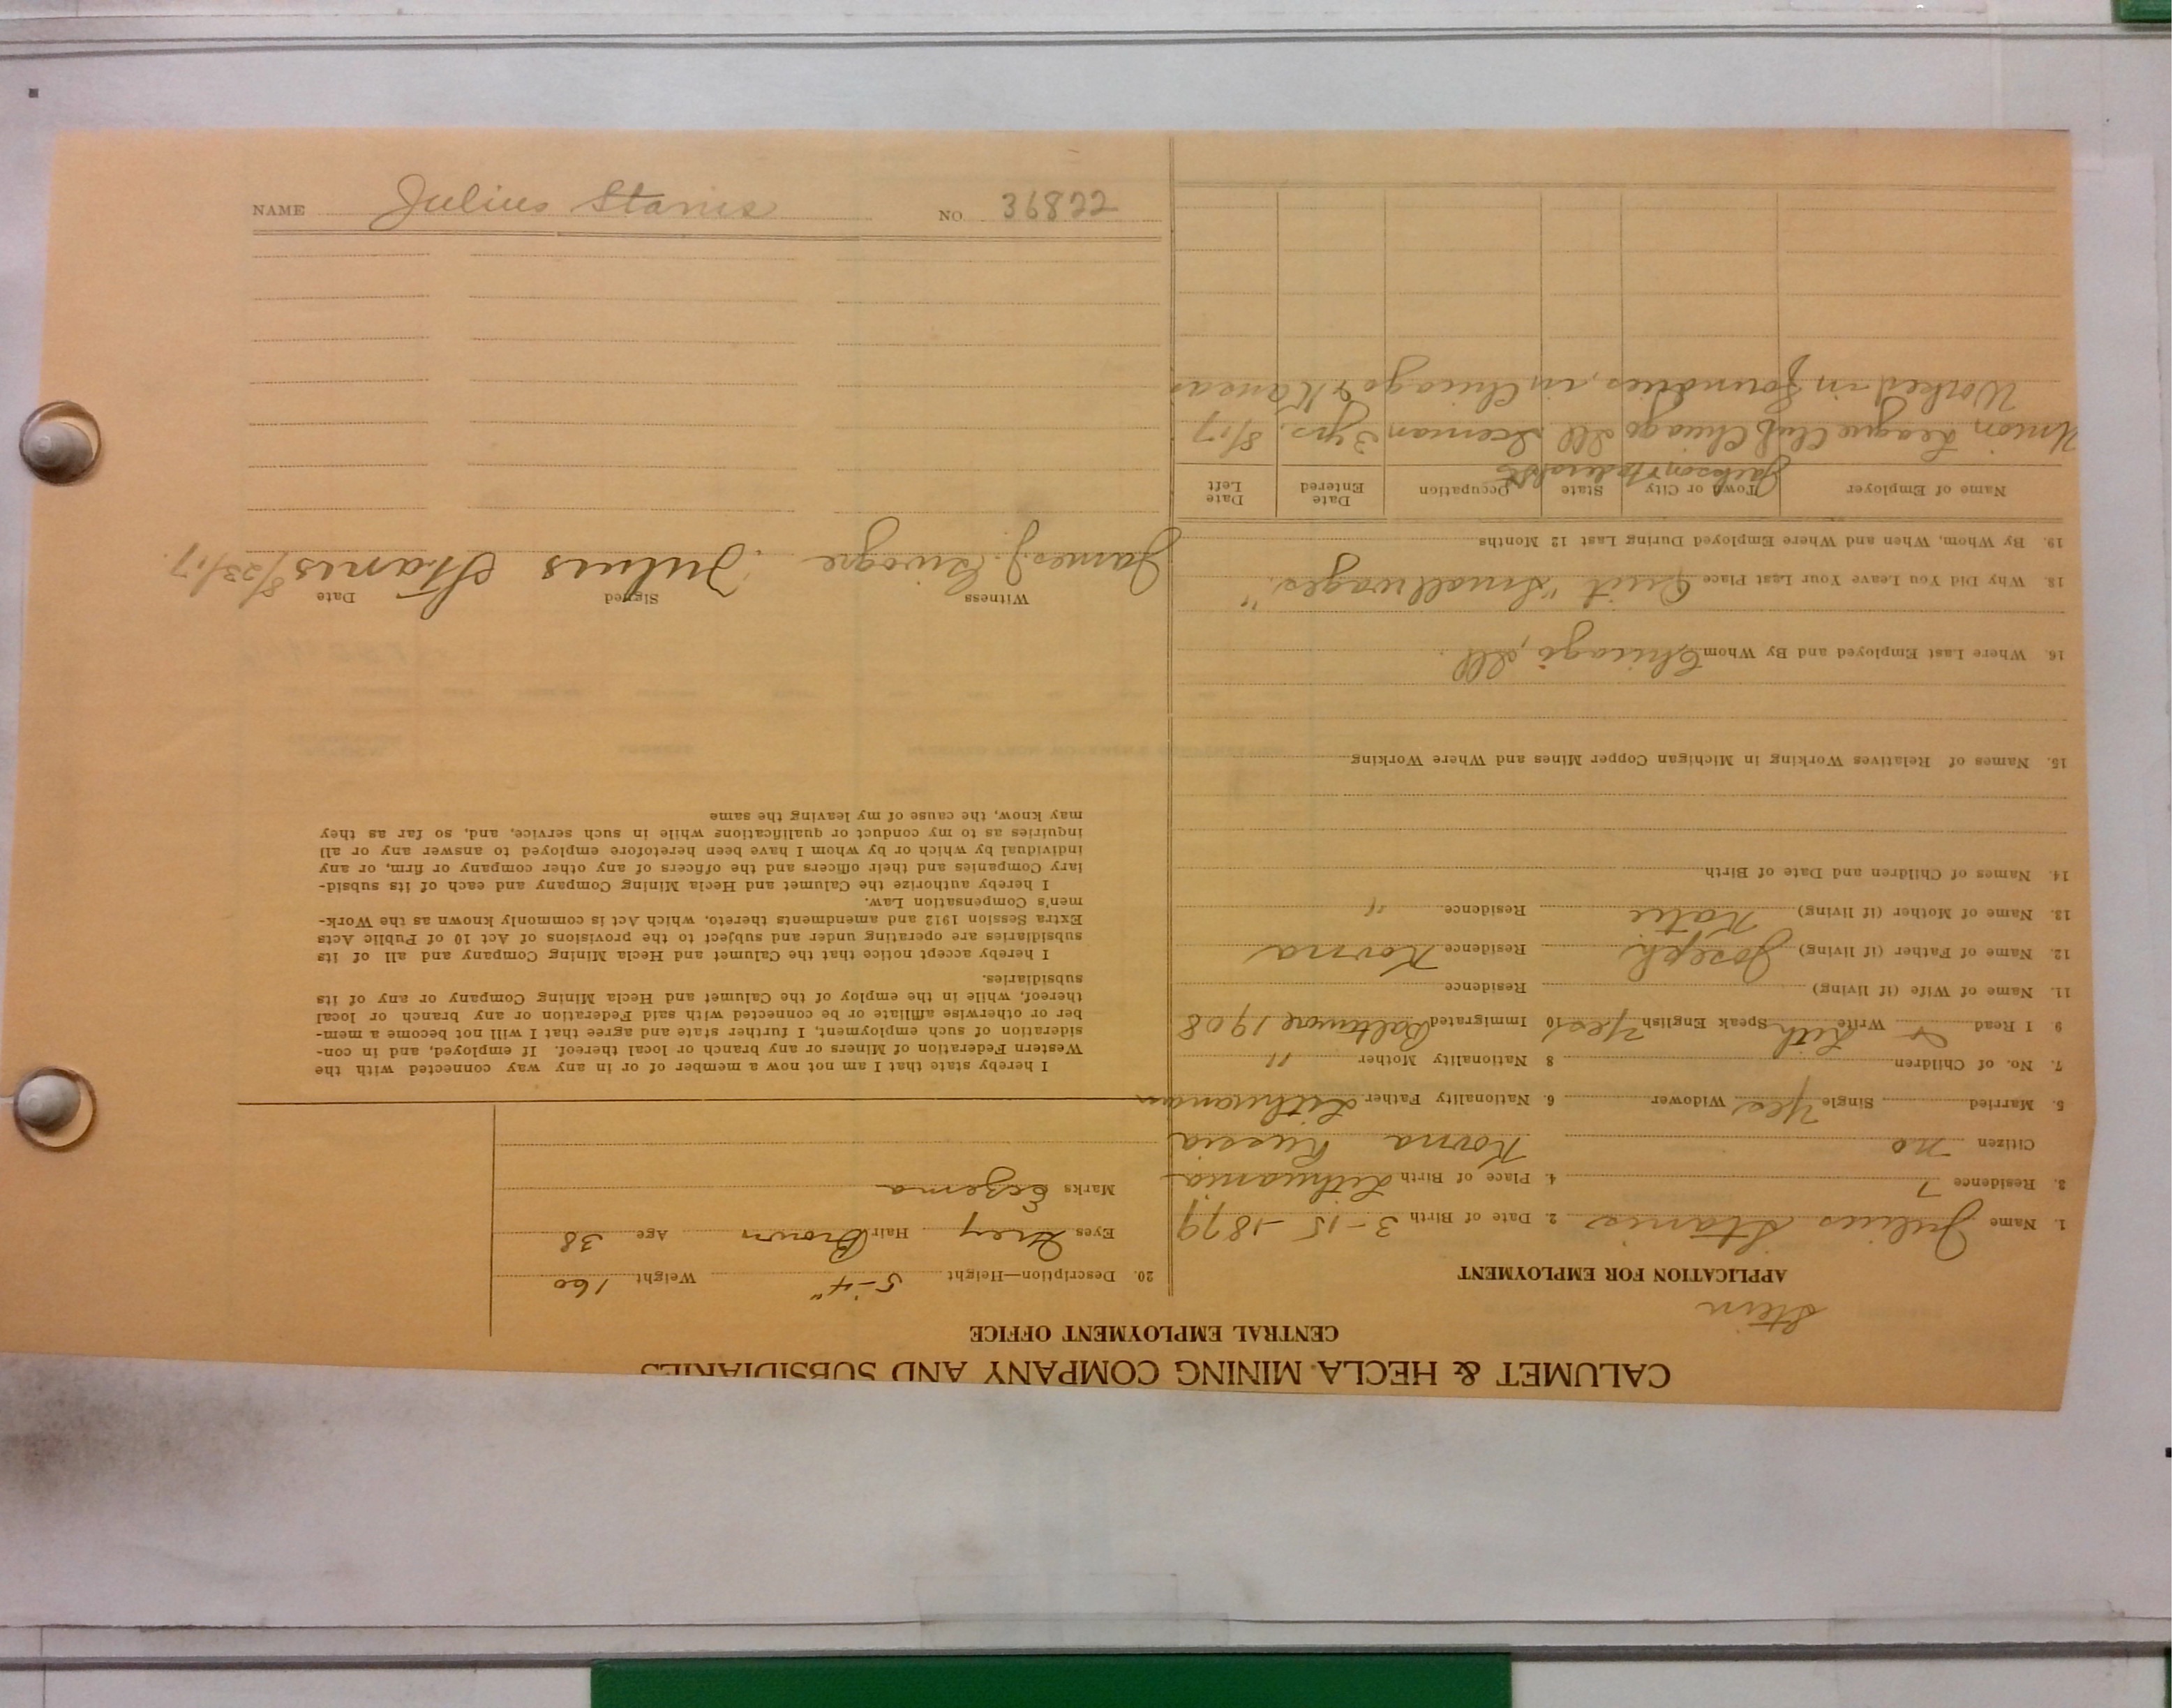 CALUMET & HECLA MINING COMPANY AND SUBSIDIARIES
CENTRAL EMPLOYMENT OFFICE
Stein
APPLICATION FOR EMPLOYMENT
1. Name Julius Stanis 2. Date of Birth 3-15-1879
3. Residence 4. Place of Birth Lithuania
Citizen no Kovna Russia
5. Married Single Yes Widower 6. Nationality Father Lithuanian
7. No. of Children 8 Nationality Mother "
9 I Read Write Lith Speak English Yes 10 Immigrated Baltimore 1908
11. Name of Wife (if living) Residence
12. Name of Father (if living) Joseph Residence Kovna
13. Name of Mother (if living) Katie Residence "
14. Names of Children and Date of Birth
15. Names of Relatives Working in Michigan Copper Mines and Where Working
16. Where Last Employed and By Whom Chicago, Ill.
18. Why Did You Leave Your Last Place Quit "Small wages."
19. By Whom, When and Where Employed During Last 12 Months
Name of Employer Town or City State Occupation Date Entered Date Left
Jackson & Federal St
Union League Club Chicago Ill Iceman 3 yrs. 8/17
Worked in foundries, in Chicago & Kansas
20. Description—Height 5-4" Weight 160
Eyes Grey Hair Brown Age 38
Marks Eczema
I hereby state that I am not now a member of or in any way connected with the
Western Federation of Miners or any branch or local thereof. If employed, and in con-
sideration of such employment, I further state and agree that I will not become a mem-
ber or otherwise affiliate or be connected with said Federation or any branch or local
thereof, while in the employ of the Calumet and Hecla Mining Company or any of its
subsidiaries.
I hereby accept notice that the Calumet and Hecla Mining Company and all of its
subsidiaries are operating under and subject to the provisions of Act 10 of Public Acts
Extra Session 1912 and amendments thereto, which Act is commonly known as the Work-
men's Compensation Law.
I hereby authorize the Calumet and Hecla Mining Company and each of its subsid-
iary Companies and their officers and the officers of any other company or firm, or any
individual by which or by whom I have been heretofore employed to answer any or all
inquiries as to my conduct or qualifications while in such service, and, so far as they
may know, the cause of my leaving the same
Witness Signed Date
James J. Julius Stanis 8/23/17.
NAME Julius Stanis NO. 36822